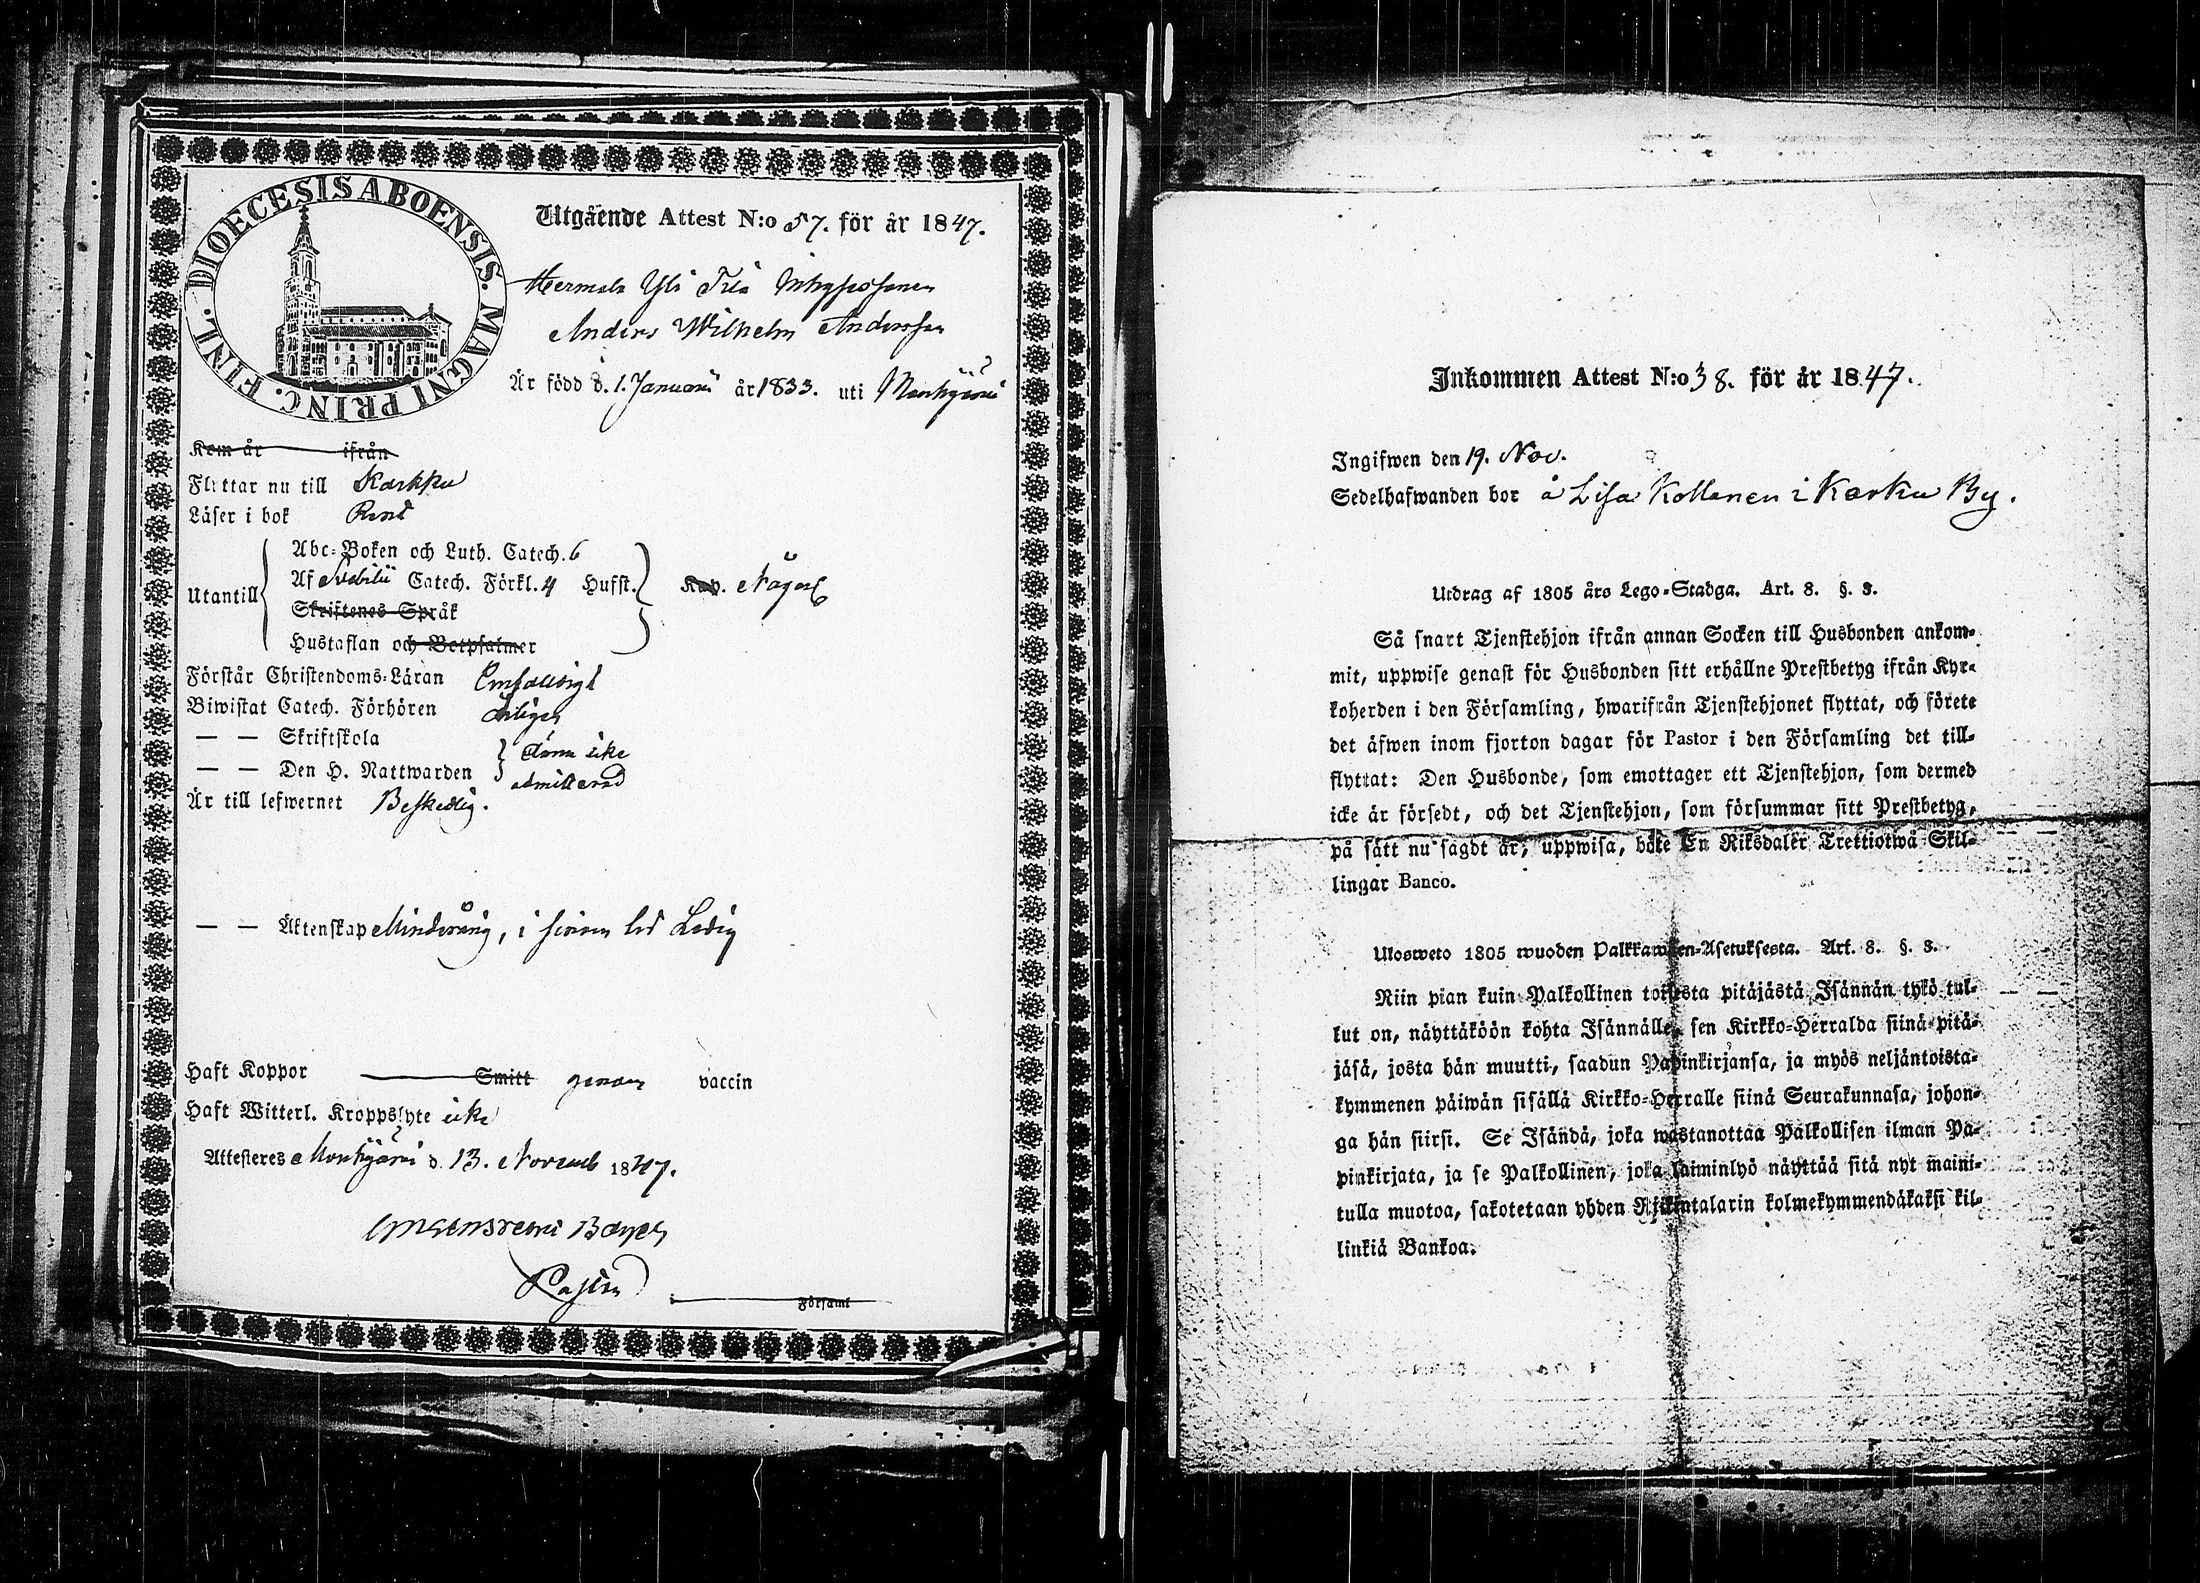 DIOECESIS ABOENSIS. MAGNI PRINC. FINL.
Utgående Attest N:o 57. för år 1847.
Anders Wilhelm Andersson
Är född d. 1. Januarii år 1833. uti
Kom år ifrån
Flyttar nu till Karkku
Läser i bok Rent
Utantill
Abc-Boken och Luth. Catech. 6
Af Svebilii Catech. Förkl. 4 Hufst.
Skriftenes Språk
Hustaflan och Botpsalmer
Förstår Christendoms-Läran Enfaldigt
Biwistat Catech. Förhören årligen
— — Skriftskola
— — Den H. Nattwarden
ännu icke
admitterad
Är till lefwernet Beskedlig.
— — Äktenskap Minderårig, i Ledig
Haft Koppor Smitt genom vaccin
Haft Witterl. Kroppslyte icke
Attesteres d. 13. Novemb 1847.
Församl
Inkommen Attest N:o 38. för år 1847.
Ingifwen den 19. Nov.
Sedelhafwanden bor å Lisa Kollanen i Karku By.
Utdrag af 1805 års Lego-Stadga. Art. 8. §. 3.
Så snart Tjenstehjon ifrån annan Socken till Husbonden ankom-
mit, uppwise genast för Husbonden sitt erhållne Prestbetyg ifrån Kyr-
koherden i den Församling, hwarifrån Tjenstehjonet flyttat, och förete
det äfwen inom fjorton dagar för Pastor i den Församling det till-
flyttat: Den Husbonde, som emottager ett Tjenstehjon, som dermed
icke är försedt, och det Tjenstehjon, som försummar sitt Prestbetyg,
på sätt nu sagdt är, uppwisa, böte En Riksdaler Trettiotwå Skil-
lingar Banco.
Ulosweto 1805 wuoden Palkkawäen-Asetuksesta. Art. 8. §. 3.
Niin pian kuin Palkollinen toisesta pitäjästä Isännän tykö tul-
lut on, näyttäköön kohta Isännälle, sen Kirkko-Herralda siinä pitä-
jäsä, josta hän muutti, saadun Papinkirjansa, ja myös neljäntoista-
kymmenen päiwän sisällä Kirkko-Herralle siinä Seurakunnasa, johon-
ga hän siirsi. Se Isändä, joka wastanottaa Palkollisen ilman Pa-
pinkirjata, ja se Palkollinen, joka laiminlyö näyttää sitä nyt maini-
tulla muotoa, sakotetaan yhden Riikintalarin kolmekymmendäkaksi kil-
linkiä Bankoa.